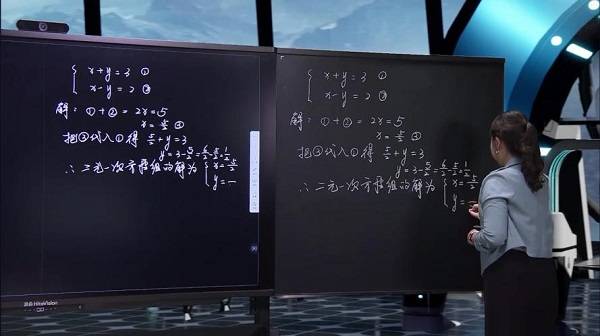 x+y=3 ①
x-y=2 ②
解: ①+②=2x=5
x=5/2 ③
把③代入①得 5/2+y=3
y=3-5/2=6/2-5/2=1/2
∴二元一次方程组的解为 { x=5/2
y=—
HiteVision
x+y=3 ①
x-y=2 ②
解: ①+②=2x=5
x=5/2 ③
把③代入①得 5/2+y=3
y=3-5/2=6/2-5/2=1/2
∴二元一次方程组的解为 { x=5/2
y=—